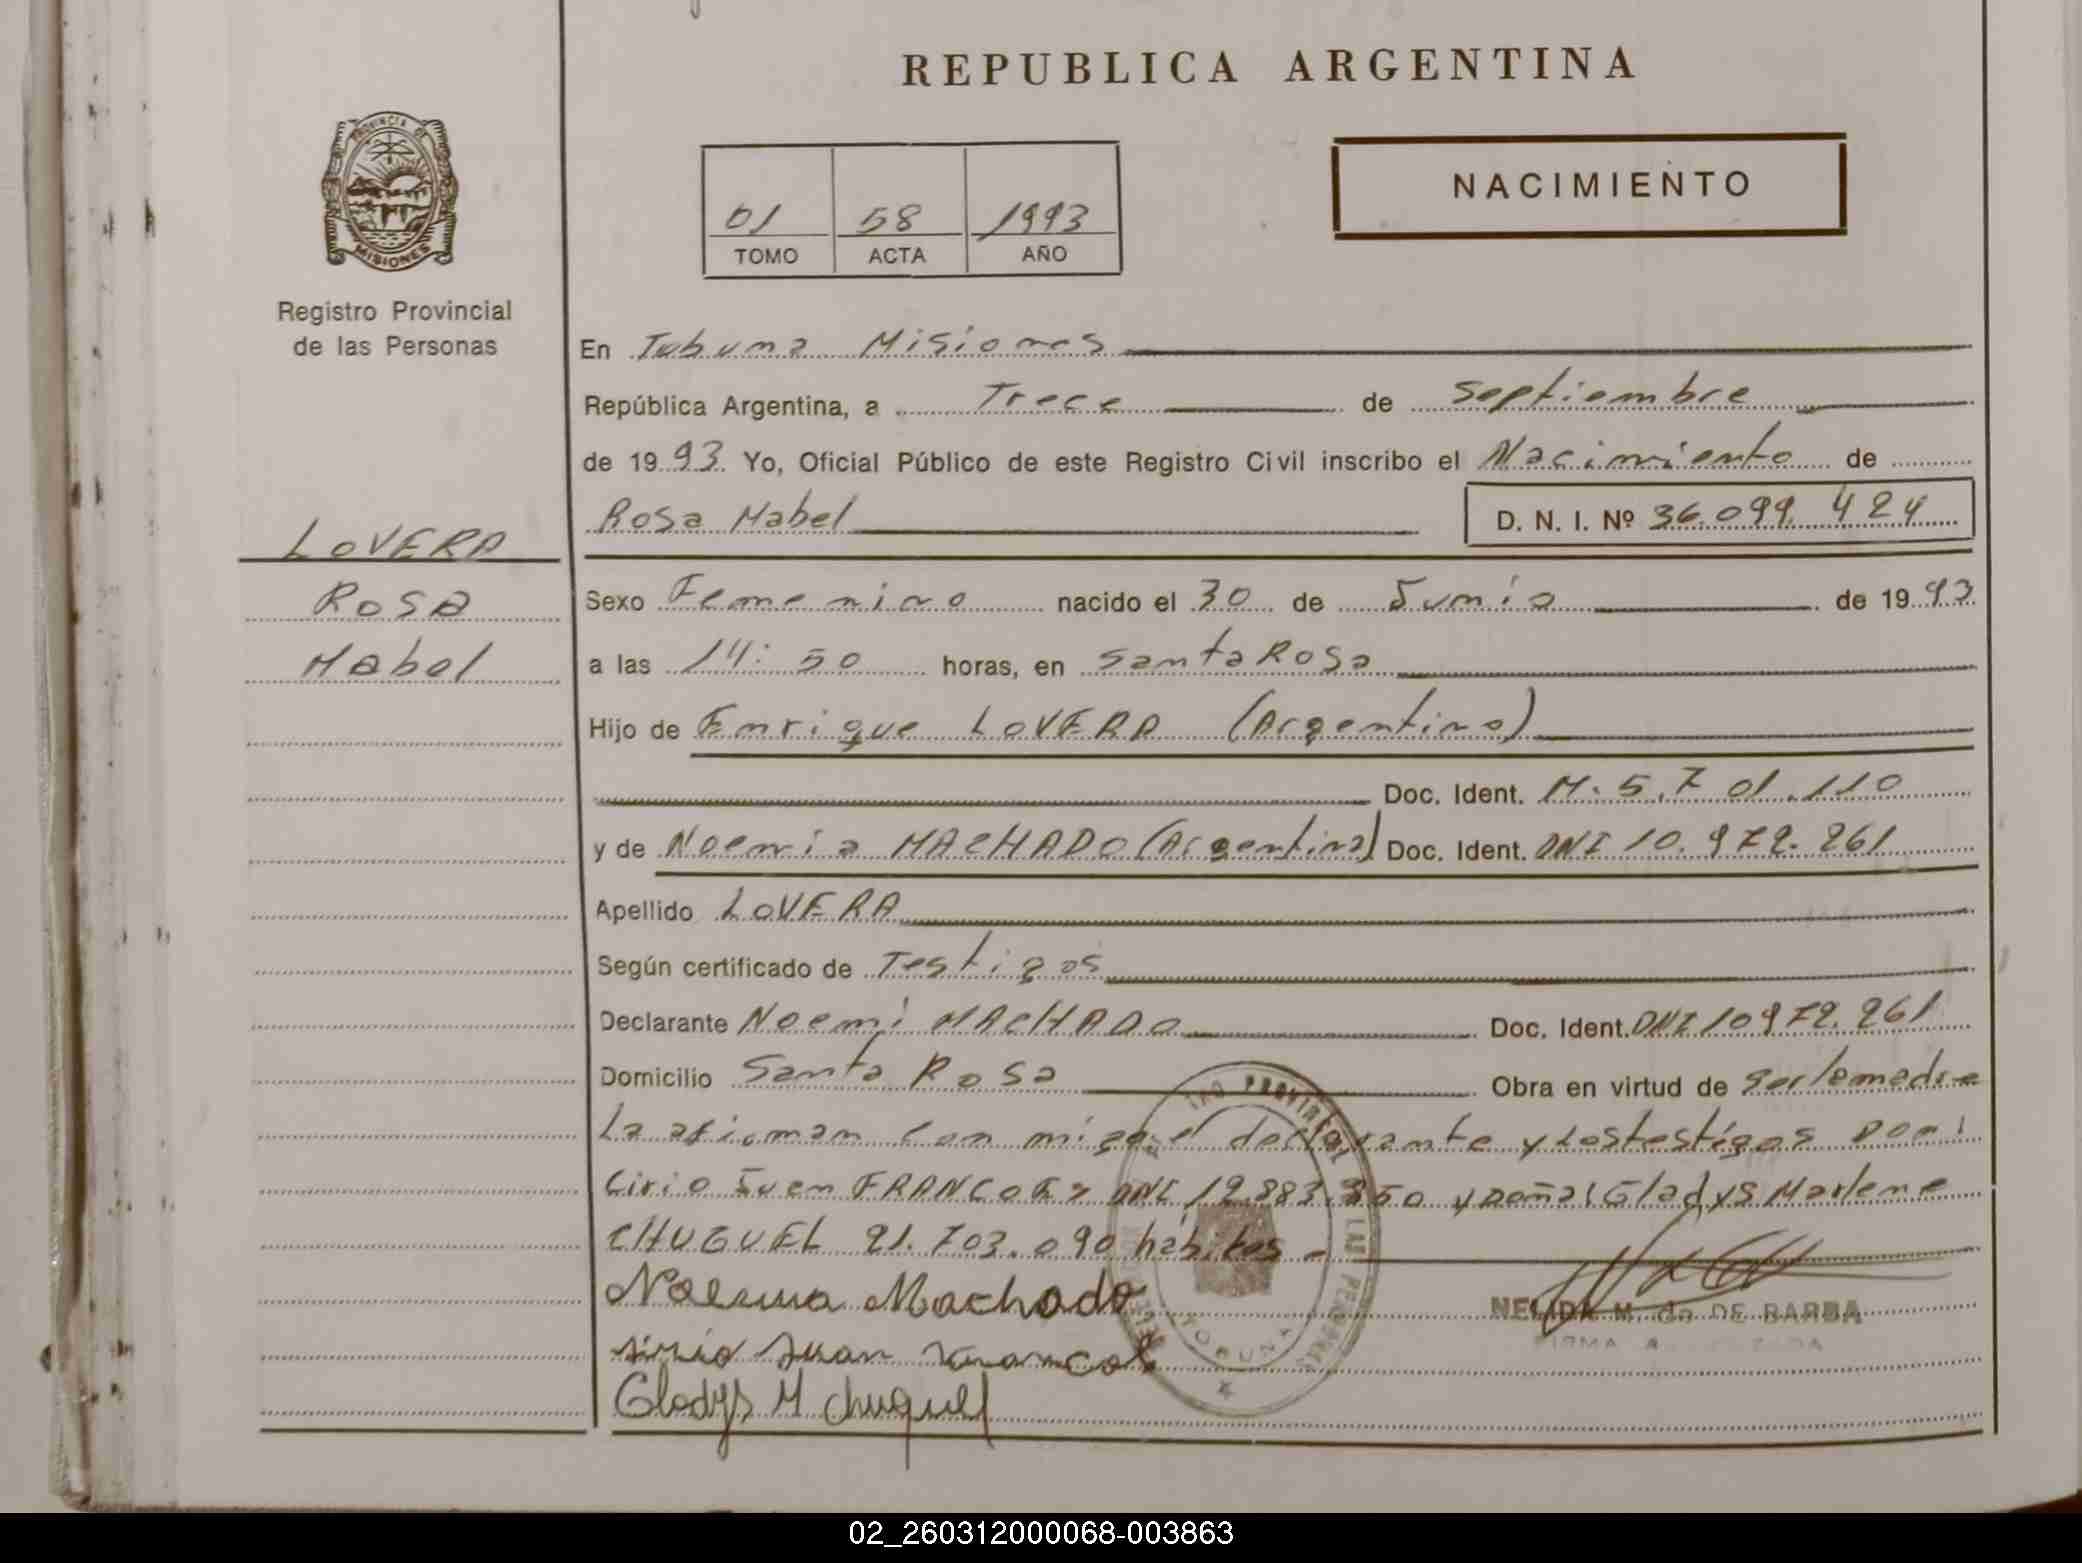 REPUBLICA ARGENTINA
PROVINCIA DE
MISIONES
Registro Provincial
de las Personas
01 58 1993
TOMO ACTA AÑO
NACIMIENTO
LOVERA
ROSA
Mabel
En Tobuna Misiones
República Argentina, a Trece de Septiembre
de 1993 Yo, Oficial Público de este Registro Civil inscribo el Nacimiento de
Rosa Mabel D. N. I. Nº 36.099.424
Sexo Femenino nacido el 30 de Junio de 1993
a las 14:50 horas, en Santa Rosa
Hijo de Enrique LOVERA (Argentino)
Doc. Ident. M. 5.701.110
y de Noemia MACHADO (Argentina) Doc. Ident. DNI 10.972.261
Apellido LOVERA
Según certificado de Testigos
Declarante Noemi MACHADO Doc. Ident. DNI 10972.261
Domicilio Santa Rosa Obra en virtud de ser la madre
La afirman con migo el declarante y los testigos Don:
Cirio Juan FRANCO DNI 12.883.850 y Doña: Gladys Marlene
CHUGUEL 21.703.090 hábiles -
Noemia Machado
sirio Juan Franco
Gladys M Chuguel
NELIDA M. de DE BARBA
FIRMA
PROVINCIAL DE LAS PERSONAS
TOBUNA
02_260312000068-003863